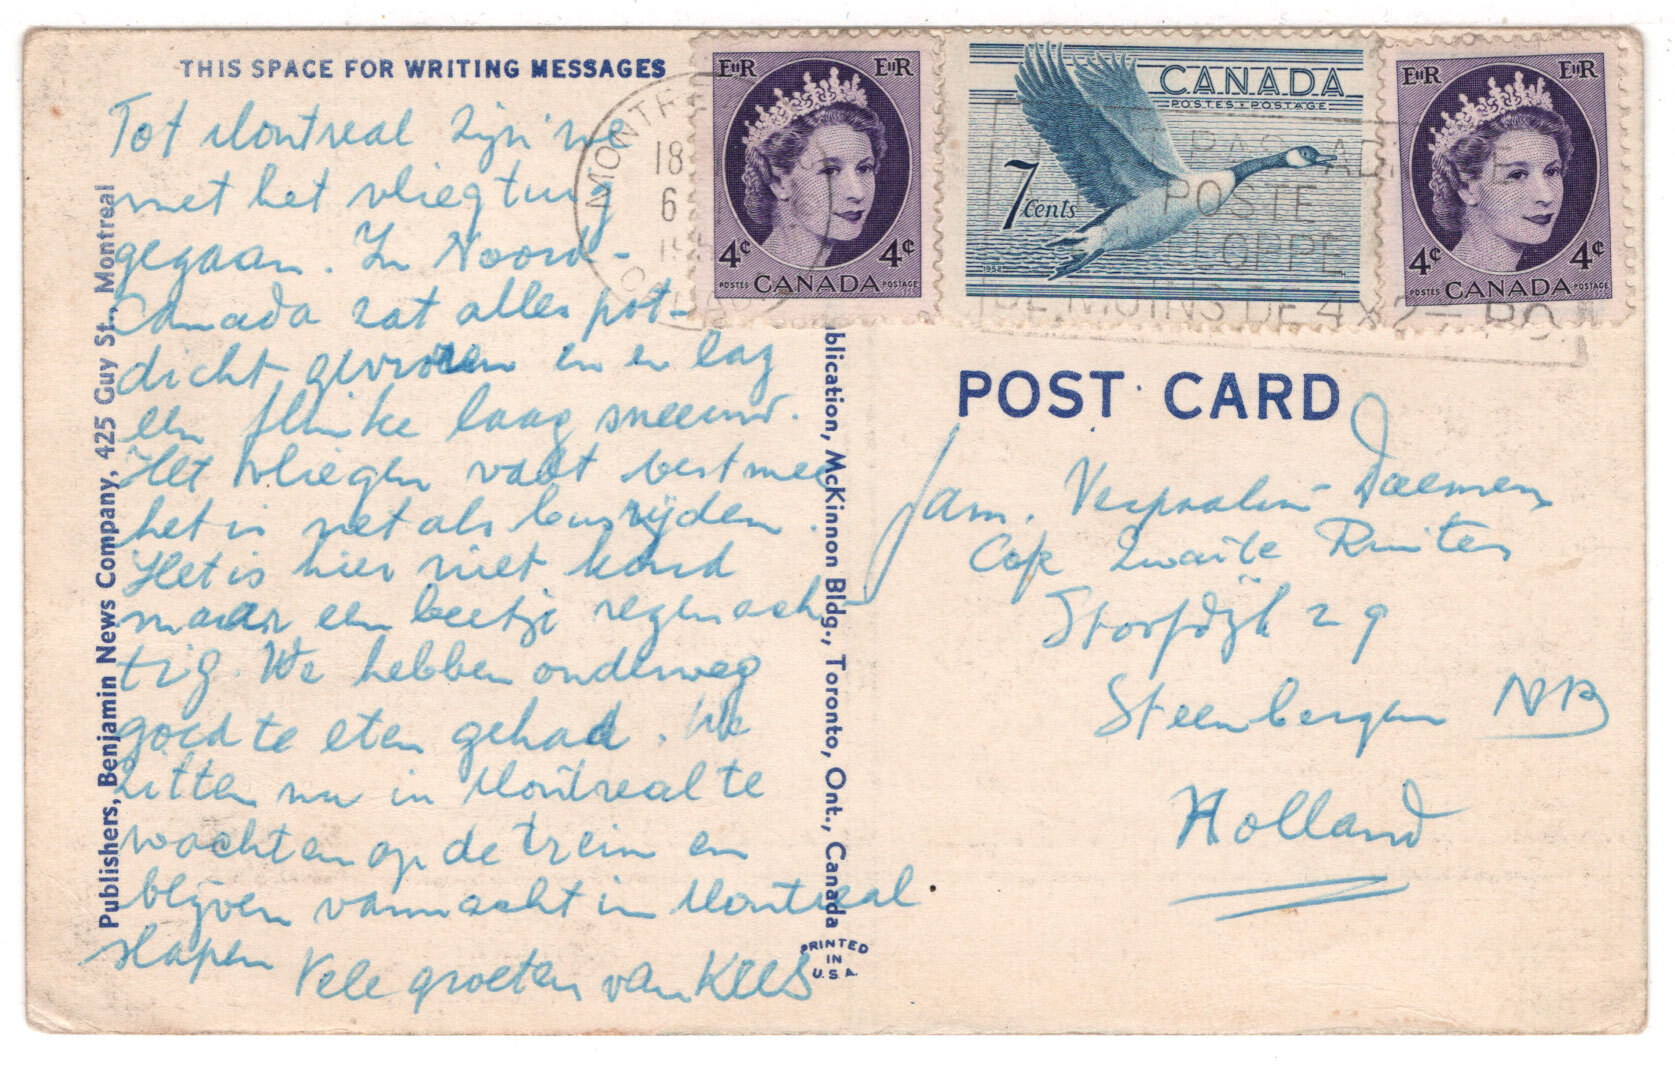 THIS SPACE FOR WRITING MESSAGES
Tot Montreal zijn we
met het vliegtuig
gegaan. In Noord-
Canada zat alles pot-
dicht gevroren en er lag
een flinke laag sneeuw.
Het vliegen valt best mee
het is net als busrijden.
Het is hier niet koud
maar een beetje regenach-
tig. We hebben onderweg
goed te eten gehad. We
zitten nu in Montreal te
wachten op de trein en
blijven vannacht in Montreal
slapen Vele groeten van KEES
Publishers, Benjamin News Company, 425 Guy St., Montreal
blication, McKinnon Bldg., Toronto, Ont., Canada
PRINTED
IN
U.S.A.
MONTRE
18
6
195
EIIR EIIR
4¢ 4¢
POSTES CANADA POSTAGE
CANADA
POSTES · POSTAGE
7 Cents
1952
EIIR EIIR
4¢ 4¢
POSTES CANADA POSTAGE
PAS
POSTE
LOPPE
DE MOINS DE 4 X 2
POST CARD
Fam. Verpaalen-Daemen
Café Zwarte Ruiter
Stoofdijk 29
Steenbergen NB
Holland